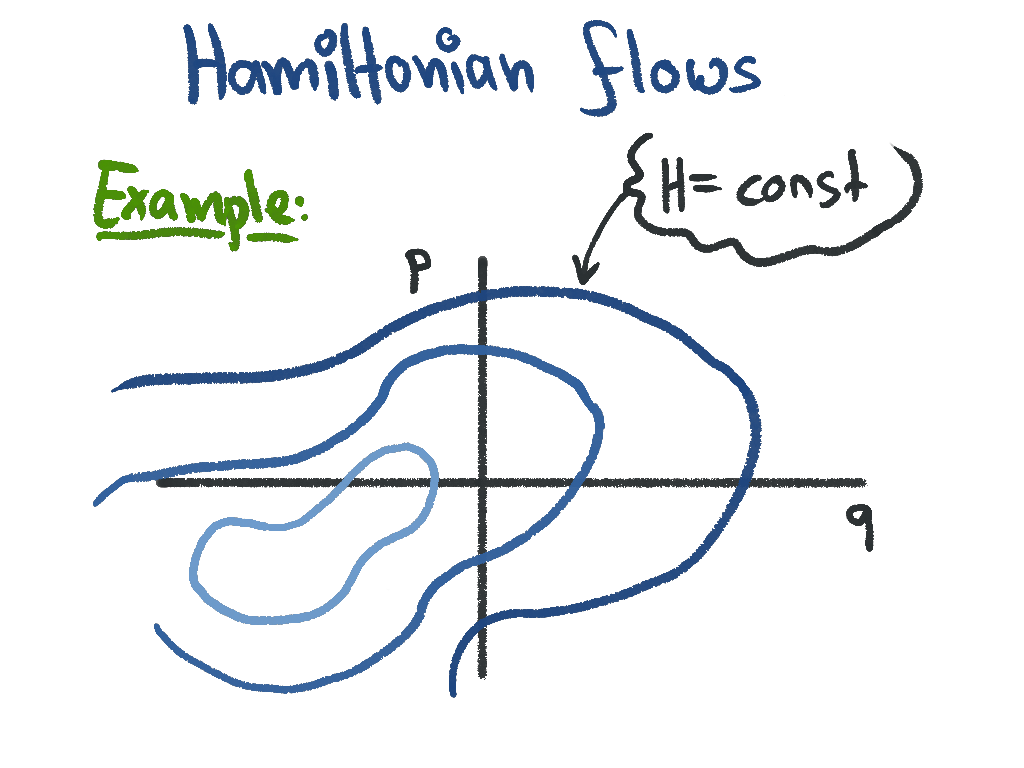 Hamiltonian flows
Example:
H = const
p
q